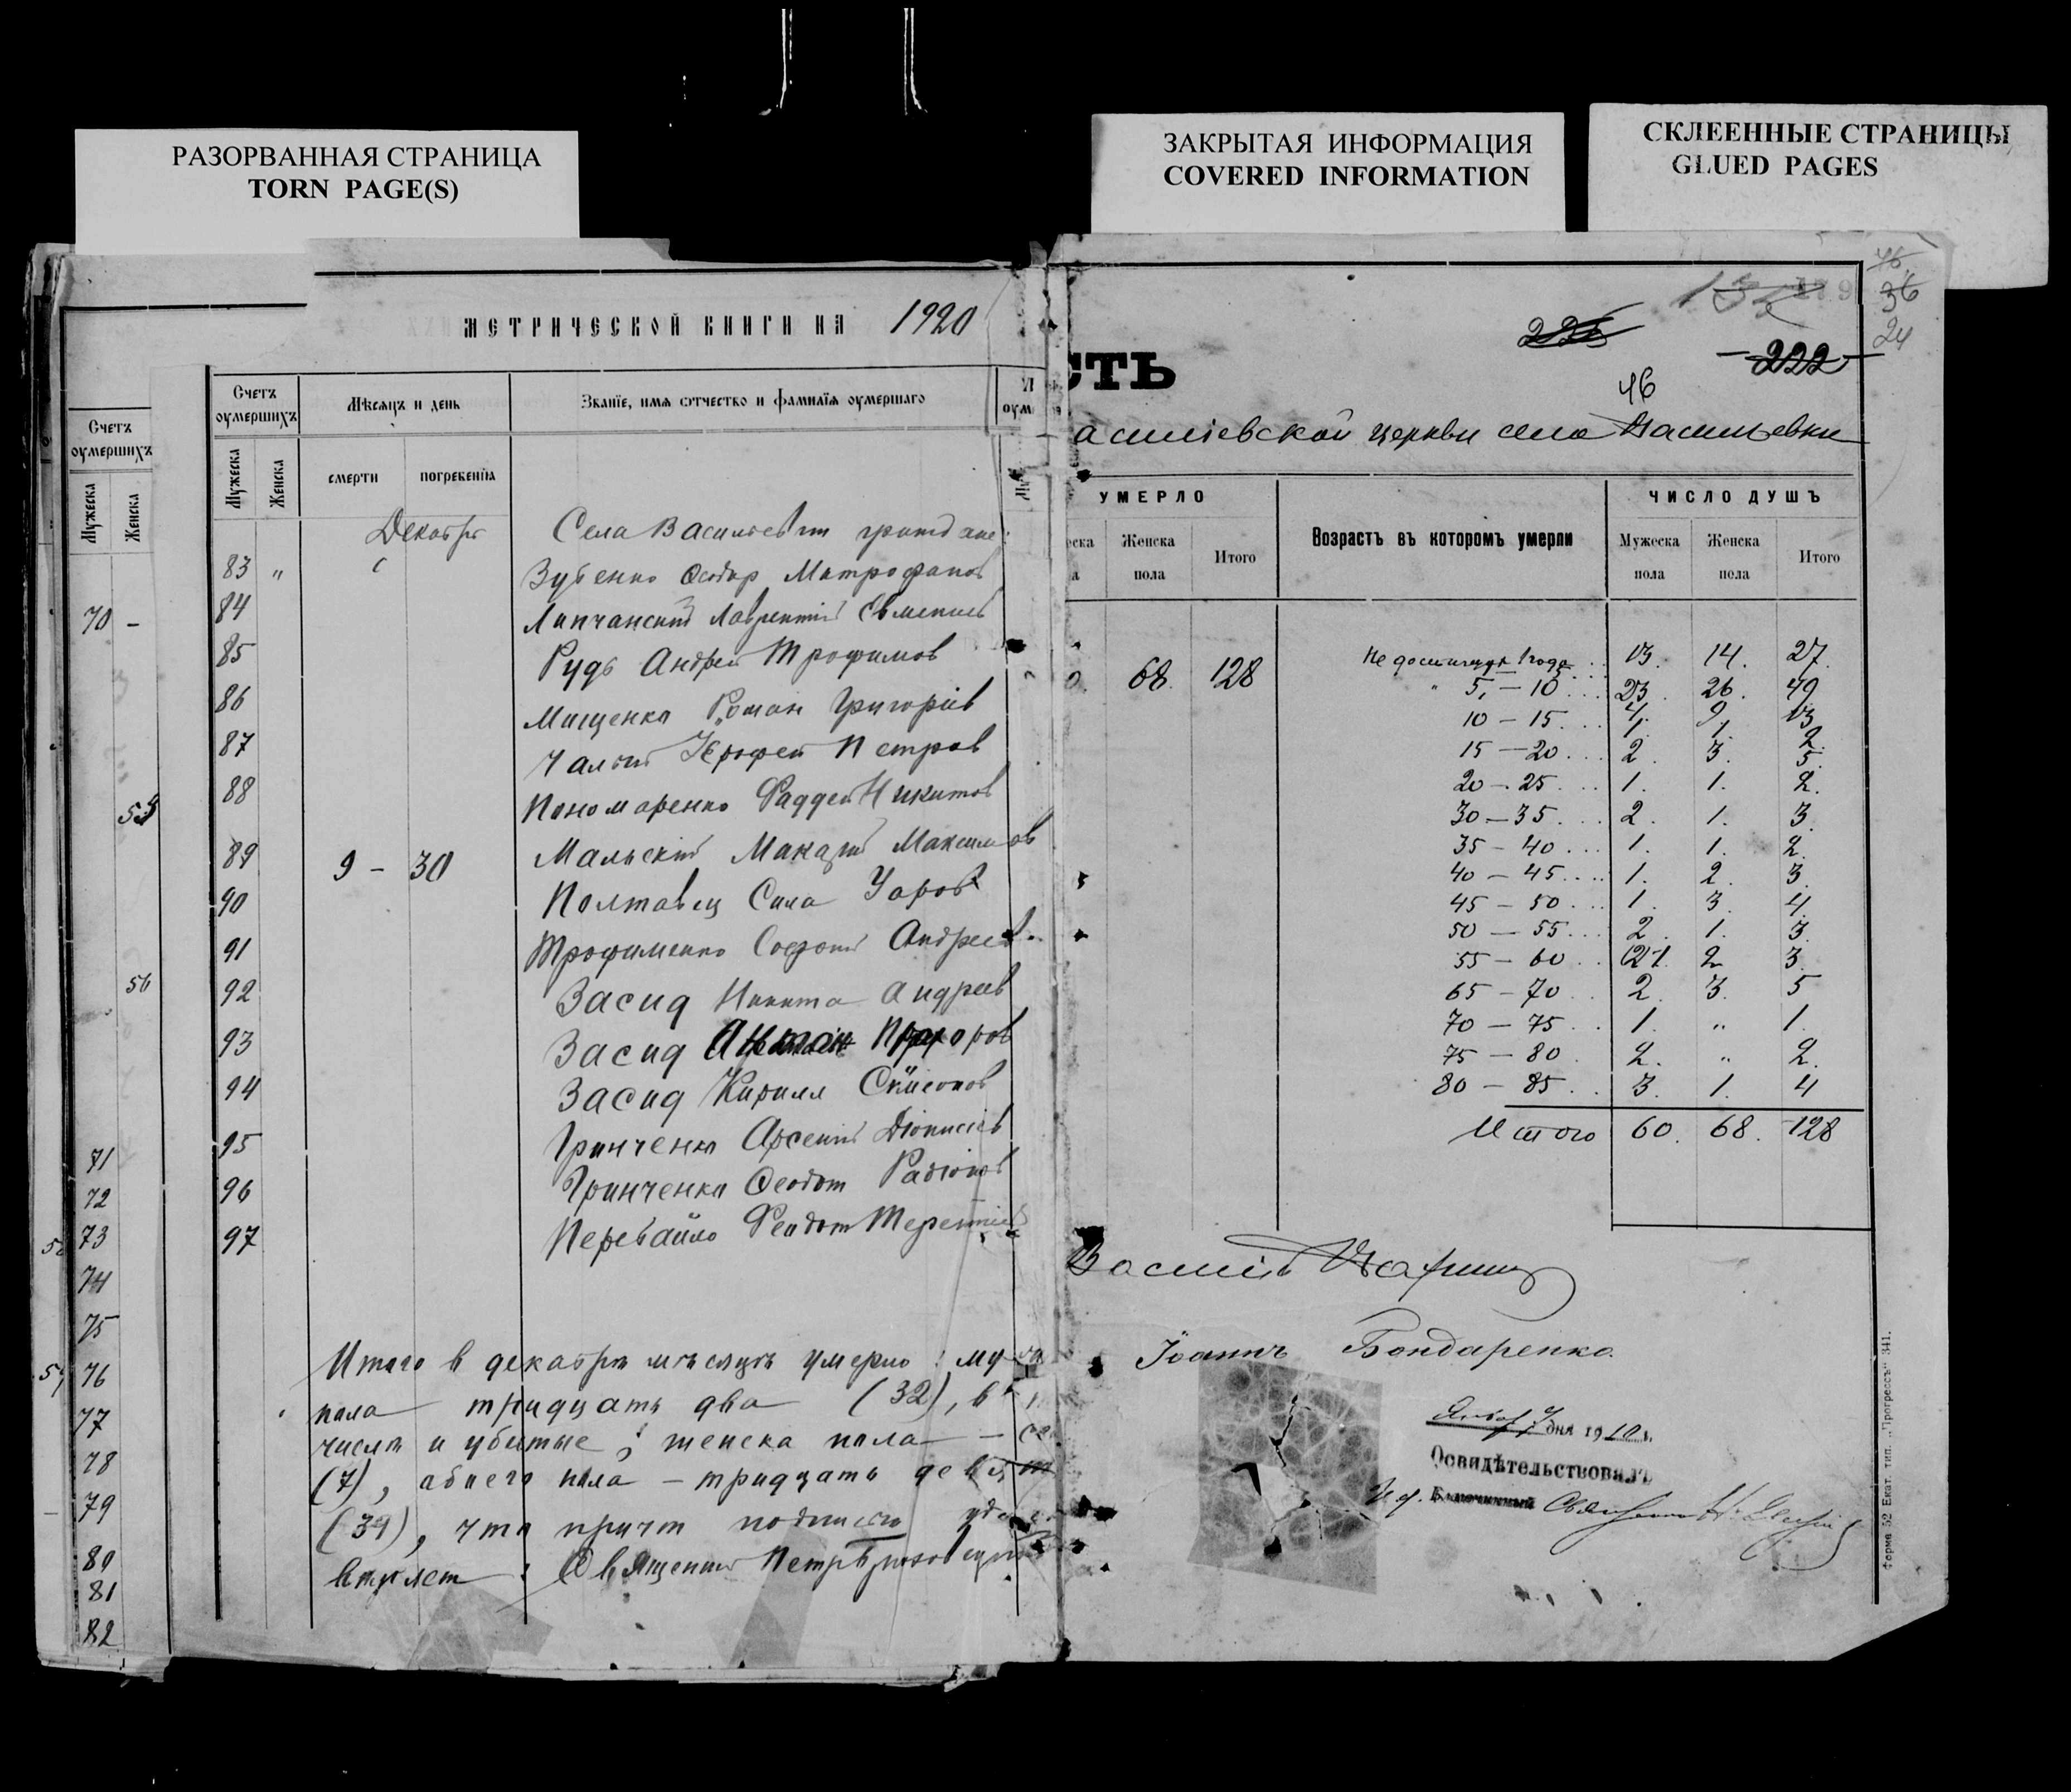 РАЗОРВАННАЯ СТРАНИЦА
TORN PAGE(S)
ЗАКРЫТАЯ ИНФОРМАЦИЯ
COVERED INFORMATION
СКЛЕЕННЫЕ СТРАНИЦЫ
GLUED PAGES
МЕТРИЧЕСКОЙ КНИГИ НА 1920
Счетъ оумершихъ
Мужеска
Женска
70 –
56
71
72
73
74
75
76
77
78
79
80
81
82
Счетъ оумершихъ
Мѣсяцъ и день
Званіе, имя отчество и фамилія оумершаго
Мужеска
Женска
смерти
погребенія
Декабрь
Села Васильевки
83 „ Зубенко Ѳеодор Митрофанов
84 Липчанский Лаврентий
85 Рудь Андрей Трофимов
86 Мищенко Роман Григоріев
87 Чалый Іерофей Петров
88 Пономаренко Фаддей Никитов
89 9 – 30 Мальский Макарий Максимов
90 Полтавец Сила Уаров
91 Трофименко Созонт Андреев
92 Засид Никита Андреев
93 Засид Антон Прохоров
94 Засид Кирилл
95 Гринченко Арсений Діонисіев
96 Гринченко Ѳеодот Радіонов
97 Перевайло Феодот Терентіев
Итого в декабрѣ мѣсяцѣ умерло: му
пола тридцать два (32), в
числѣ и убитые; женска пола –
(7), обоего пола – тридцать девят
(39), что причт подписью
Священник Петръ
СТЬ
222
46
36
24
46
асиліевской церкви села Васильевки
УМЕРЛО
Женска пола
Итого
Возрастъ въ которомъ умерли
ЧИСЛО ДУШЪ
Мужеска пола
Женска пола
Итого
68. 128
Не достигших 1 года . . 13. 14. 27.
„ 5, – 10 . . . 23. 26. 49
10 – 15 . . . 4. 9. 13
1. 1. 2.
15 – 20 . . . 2. 3. 5.
20 – 25 . . . 1. 1. 2.
30 – 35 . . . 2. 1. 3.
35 – 40 . . . 1. 1. 2.
40 – 45 . . . 1. 2. 3.
45 – 50 . . . 1. 3. 4.
50 – 55 . . . 2. 1. 3.
55 – 60 . . 1. 2 3.
65 – 70 . . 2. 3. 5
70 – 75 . . 1. „ 1.
75 – 80 . 2. „ 2.
80 – 85 . . 3. 1. 4
Итого 60. 68. 128
Василій
Іоаннъ Бондаренко.
дня 1910 г.
Освидѣтельствовалъ
И. д. Благочинный
Форма 52 Екат. тип. „Прогрессъ“ 341.